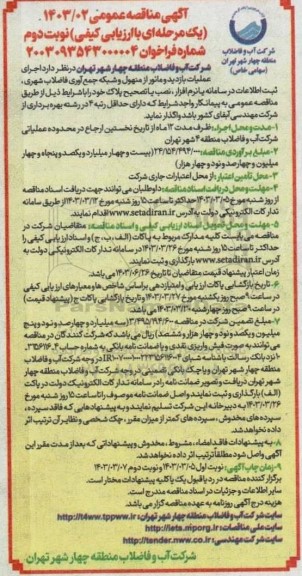 آگهی مناقصه عمومی ۱۴۰۳/۰۲
(یک مرحله‌ای با ارزیابی کیفی) نوبت دوم
شماره فراخوان ۲۰۰۳۰۹۳۵۴۳۰۰۰۰۰۴
شرکت آب و فاضلاب
منطقه چهار شهر تهران
(سهامی خاص)
شرکت آب و فاضلاب منطقه چهار شهر تهران در نظر دارد اجرای
عملیات بازدید و مانور از منهول و شبکه جمع‌آوری فاضلاب شهری،
ثبت اطلاعات در سامانه یا نرم افزار، نصب یا تصحیح پلاک خود را با شرایط ذیل از طریق
مناقصه عمومی به پیمانکار واجد شرایط که دارای حداقل رتبه ۴ در رشته بهره برداری از
شرکت مهندسی آبفای کشور باشد واگذار نماید.
۱-مدت و محل اجرا: ظرف مدت ۱۲ ماه از تاریخ نخستین ارجاع در محدوده عملیاتی
شرکت آب و فاضلاب منطقه ۴ شهر تهران
۲- مبلغ برآوردی مناقصه: (بیست و چهار میلیارد و یکصد و پنجاه و چهار
میلیون و چهارصد و نود و چهار هزار)
۳- محل تأمین اعتبار: از محل اعتبارات جاری شرکت
۴- مهلت و محل دریافت اسناد مناقصه: داوطلبان می توانند جهت دریافت اسناد مناقصه
از روز شنبه مورخ ۱۴۰۳/۰۳/۰۵ حداکثر تا ساعت ۱۵ روز شنبه مورخ ۱۴۰۳/۰۳/۱۲ از طریق سامانه
تدارکات الکترونیکی دولت به آدرس www.setadiran.ir اقدام نمایند.
۵- مهلت و محل تحویل اسناد ارزیابی کیفی و اسناد مناقصه: متقاضیان شرکت در
مناقصه می بایست کلیه مدارک مربوط به پاکات (الف، ب، ج) و اسناد ارزیابی کیفی را
حداکثر تا ساعت ۱۵ روز شنبه مورخ ۱۴۰۳/۰۳/۲۶ در سامانه تدارکات الکترونیکی دولت به
آدرس www.setadiran.ir بارگذاری و ثبت نمایند.
زمان اعتبار پیشنهاد قیمت متقاضیان تا تاریخ ۱۴۰۳/۰۶/۲۶ می باشد.
۶- تاریخ بازگشایی پاکات ارزیابی و امتیازدهی بر اساس شاخص ها و معیارهای ارزیابی کیفی
در ساعت ۹ صبح روز یکشنبه مورخ ۱۴۰۳/۰۳/۲۷ و تاریخ بازگشایی پاکات ج (پیشنهاد قیمت)
در ساعت ۹ صبح روز چهارشنبه ۱۴۰۳/۰۳/۳۰ می باشد.
۷- مبلغ تضمین شرکت در مناقصه (سه میلیارد و چهارصد و نود و پنج
میلیون و یکصد و نود و چهار هزار و ششصد) ریال می باشد که شرکت کنندگان در مناقصه
می توانند به صورت فیش واریزی نقدی و یا ضمانت نامه بانکی به شماره حساب
نزد بانک رسالت با شناسه شبای در وجه شرکت آب و فاضلاب
منطقه چهار شهر تهران و یا چک بانکی تضمینی در وجه شرکت آب و فاضلاب منطقه چهار
شهر تهران دریافت و تصویر ضمانت نامه را در سامانه تدارکات الکترونیک دولت در پاکت
(الف) بارگذاری و ثبت نمایند و اصل ضمانت نامه موصوف را تا ساعت ۱۵ روز شنبه مورخ
۱۴۰۳/۰۳/۲۶ به دبیرخانه این شرکت تسلیم نمایند و به پیشنهادهایی که فاقد سپرده،
سپرده های مخدوش، سپرده های کمتر از میزان مقرر، چک شخصی و نظایر آن ترتیب اثر
داده نخواهد شد.
۸- به پیشنهادات فاقد امضاء، مشروط، مخدوش و پیشنهاداتی که بعد از مدت مقرر این
آگهی واصل شود مطلقاً ترتیب اثر داده نخواهد شد.
۹- زمان چاپ آگهی: نوبت اول ۱۴۰۳/۰۳/۰۵ و نوبت دوم ۱۴۰۳/۰۳/۰۷
برگزار کننده مناقصه در رد یا قبول یک یا کلیه پیشنهادات مختار است.
سایر اطلاعات و جزئیات در اسناد مناقصه مندرج است.
هزینه درج آگهی روزنامه به عهده مناقصه گزار می باشد.
سایت شرکت آب و فاضلاب منطقه چهار شهر تهران: http://t4ww.tppww.ir
سایت ملی مناقصات: http://iets.mporg.ir
سایت شرکت مهندسی: http://tender.nww.co.ir
شرکت آب و فاضلاب منطقه چهار شهر تهران